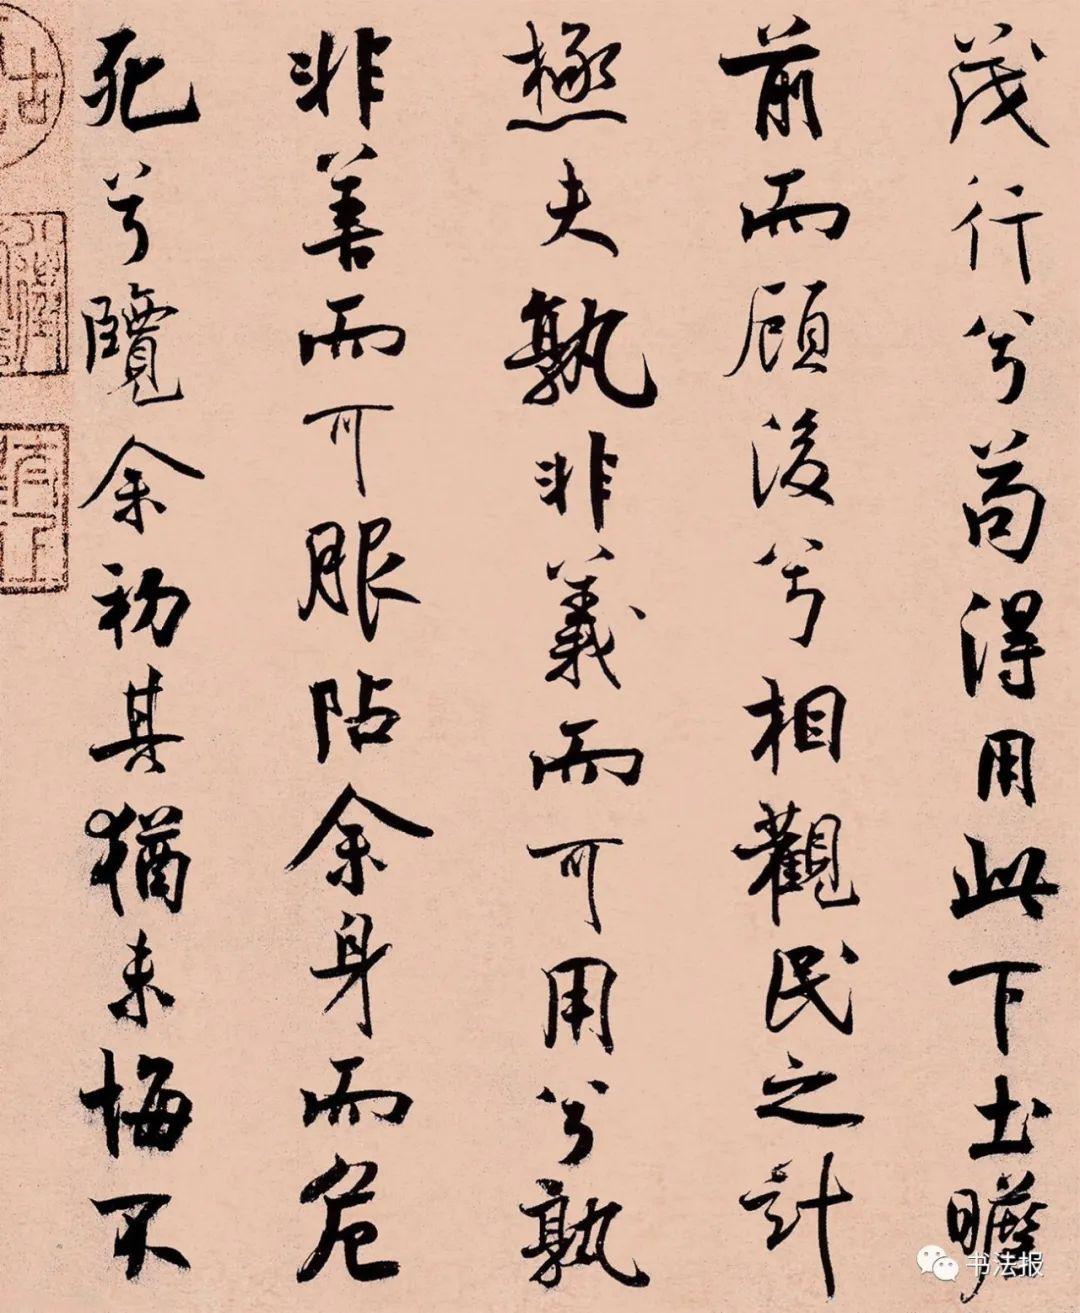 茂行兮苟得用此下土瞻
前而顧後兮相觀民之計
極夫孰非義而可用兮孰
非善而可服阽余身而危
死兮覽余初其猶未悔不
书法报